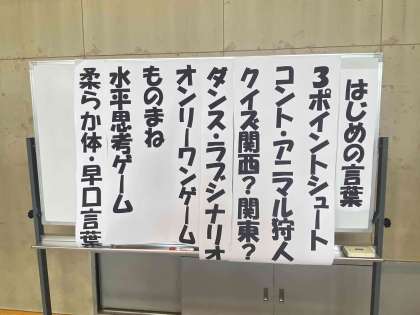 はじめの言葉
3ポイントシュート
コント・アニマル狩人
クイズ関西?関東?
ダンス・ラブシナリオ
オンリーワンゲーム
ものまね
水平思考ゲーム
柔らか体・早口言葉